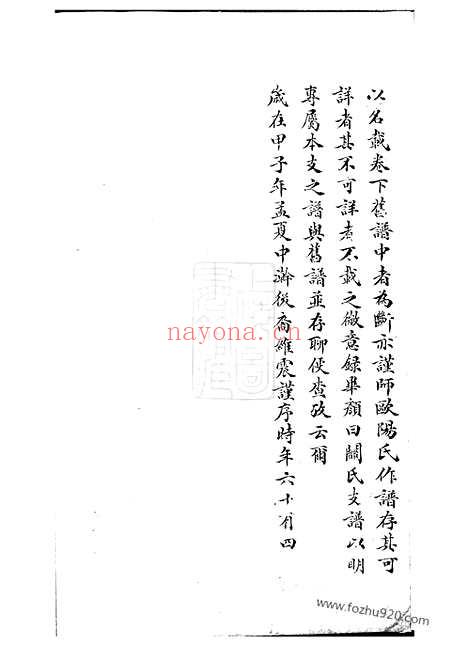 以名載卷下舊譜中者為斷亦謹師歐陽氏作譜存其可
詳者其不可詳者不載之微意錄畢顏曰關氏支譜以明
專屬本支之譜與舊譜並存聊便查攷云爾
歲在甲子年孟夏中澣後裔維震謹序時年六十有四
nayona.cn
www.fozhu920.com